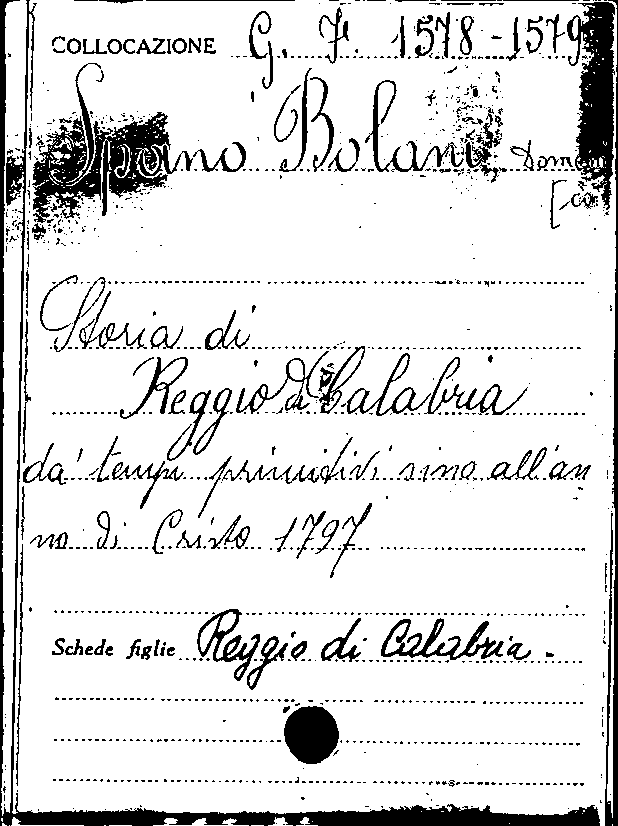 COLLOCAZIONE G. F. 1578-1579
Spanò Bolani, Domen
[-co
Storia di
Reggio di Calabria
da' tempi primitivi sino all'an
no di Cristo 1797
Schede figlie Reggio di Calabria -